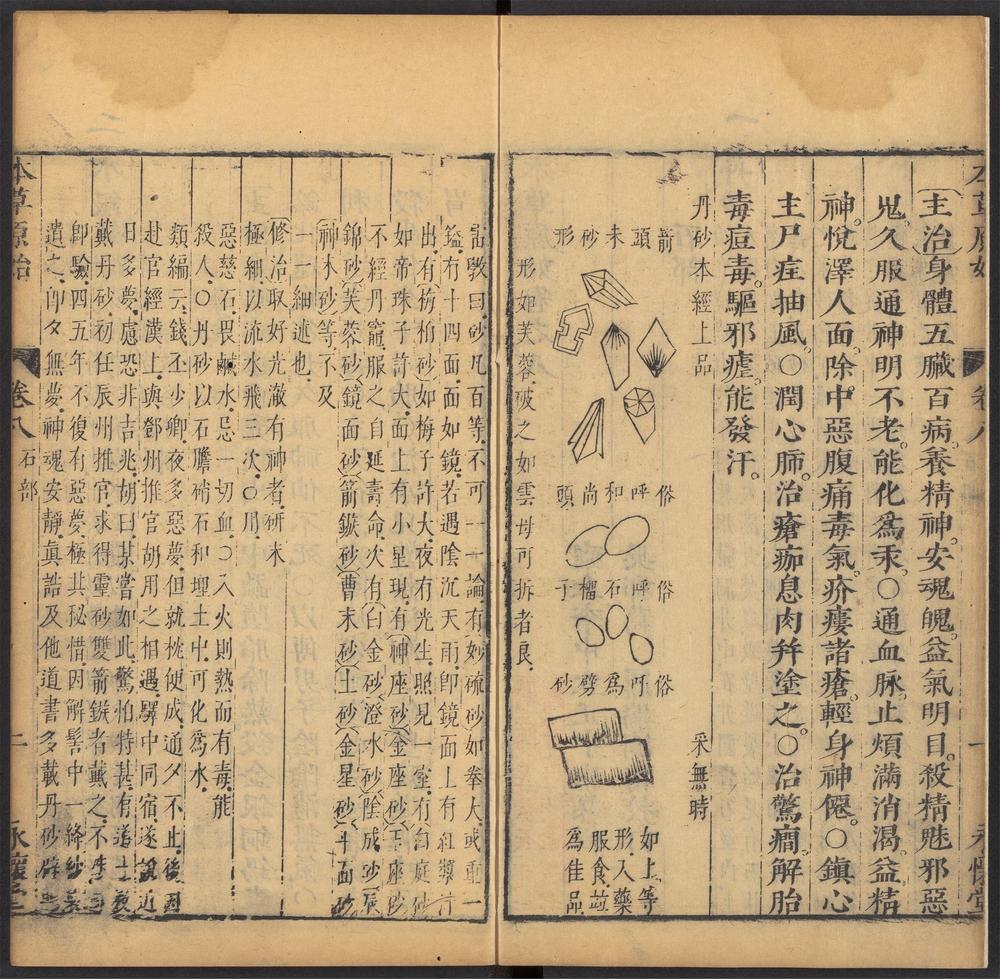 本草原始
卷八
一
永懷堂
主治身體五臟百病養精神。安魂魄益氣明目。殺精魅邪惡
鬼。久服通神明不老。能化為汞。○通血脉。止煩滿消渴。益精
神。悅澤人面。除中惡腹痛毒氣。疥瘻諸瘡。輕身神僊。○鎮心
主尸疰抽風。○潤心肺。治瘡痂息肉幷塗之。○治驚癇。解胎
毒痘毒。驅邪瘧。能發汗。
丹砂本經上品
采無時
箭頭
朱砂形
俗呼和尚頭
俗呼石榴子
俗呼為劈砂
如上等
形入藥
服食並
為佳品
形如芙蓉破之如雲母可拆者良.
雷斆曰.砂凡百等.不可一一論有妙硫砂如拳大.或重一
鎰有十四面.面如鏡若遇陰沉天雨.卽鏡面上有紅漿汁
出.有梅栢砂如梅子許大.夜有光生.照見一室.有白庭砂
如帝珠子許大.面上有小星現.有神座砂金座砂玉座砂
不經丹竈服之自延壽命.次有白金砂澄水砂陰成砂辰
錦砂芙蓉砂鏡面砂箭鏃砂曹末砂土砂金星砂平面砂
神末砂等不及
一一細述也.
修治取好光澈有神者研末
極細.以流水飛三次.○用.
惡慈石.畏鹹水.忌一切血.○入火則熱而有毒.能
殺人.○丹砂以石膽硝石和埋土中.可化為水.
類編云.錢丕少卿.夜多惡夢.但就枕便成通夕不止.後因
赴官經漢上.與鄧州推官胡用之相遇.驛中同宿.遂說近
日多夢.慮恐非吉兆.胡曰.某嘗如此.驚怕特甚.有道士教
戴丹砂.初任辰州推官.求得靈砂雙箭鏃者戴之.不
卽驗.四五年不復有惡夢.極其秘惜.因解髻中一絳紗
遺之.卽夕無夢.神魂安靜.眞誥及他道書多載丹砂辟
本草原始
卷八
石部
二
永懷堂